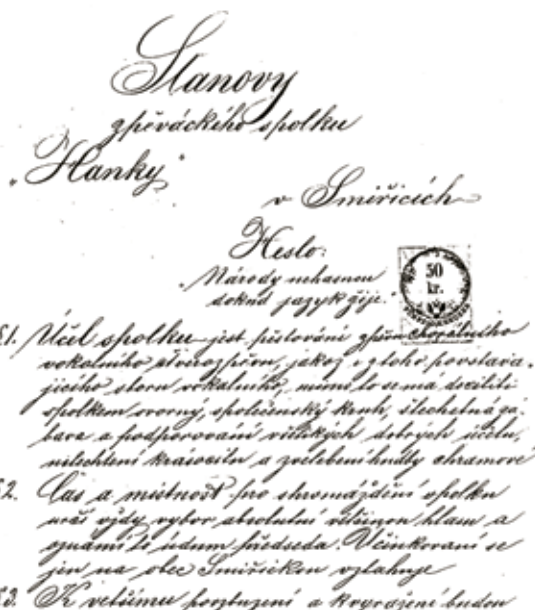 Stanovy
zpěváckého spolku
„Hanky"
v Smiřicích
Heslo:
„Národy nehasnou
dokud jazyk žije."
50
kr.
§1. Účel spolku jest pěstování zpěvu
vokálního čtverozpěvu, jakož i z toho povstáva-
jícího sboru vokálního, mimo to se má docíliti
spolkem dvorný, společenský kruh, šlechetná zá-
bava a podporování všelikých dobrých účelů,
zvelebení hudby chrámové
§2. Čas a místnost pro shromáždění spolku
určí vždy výbor absolutní většinou hlasů a
oznámí to údům předseda. Účinkování se
jen na obec Smiřickou vztahuje
§3. K většímu a budou